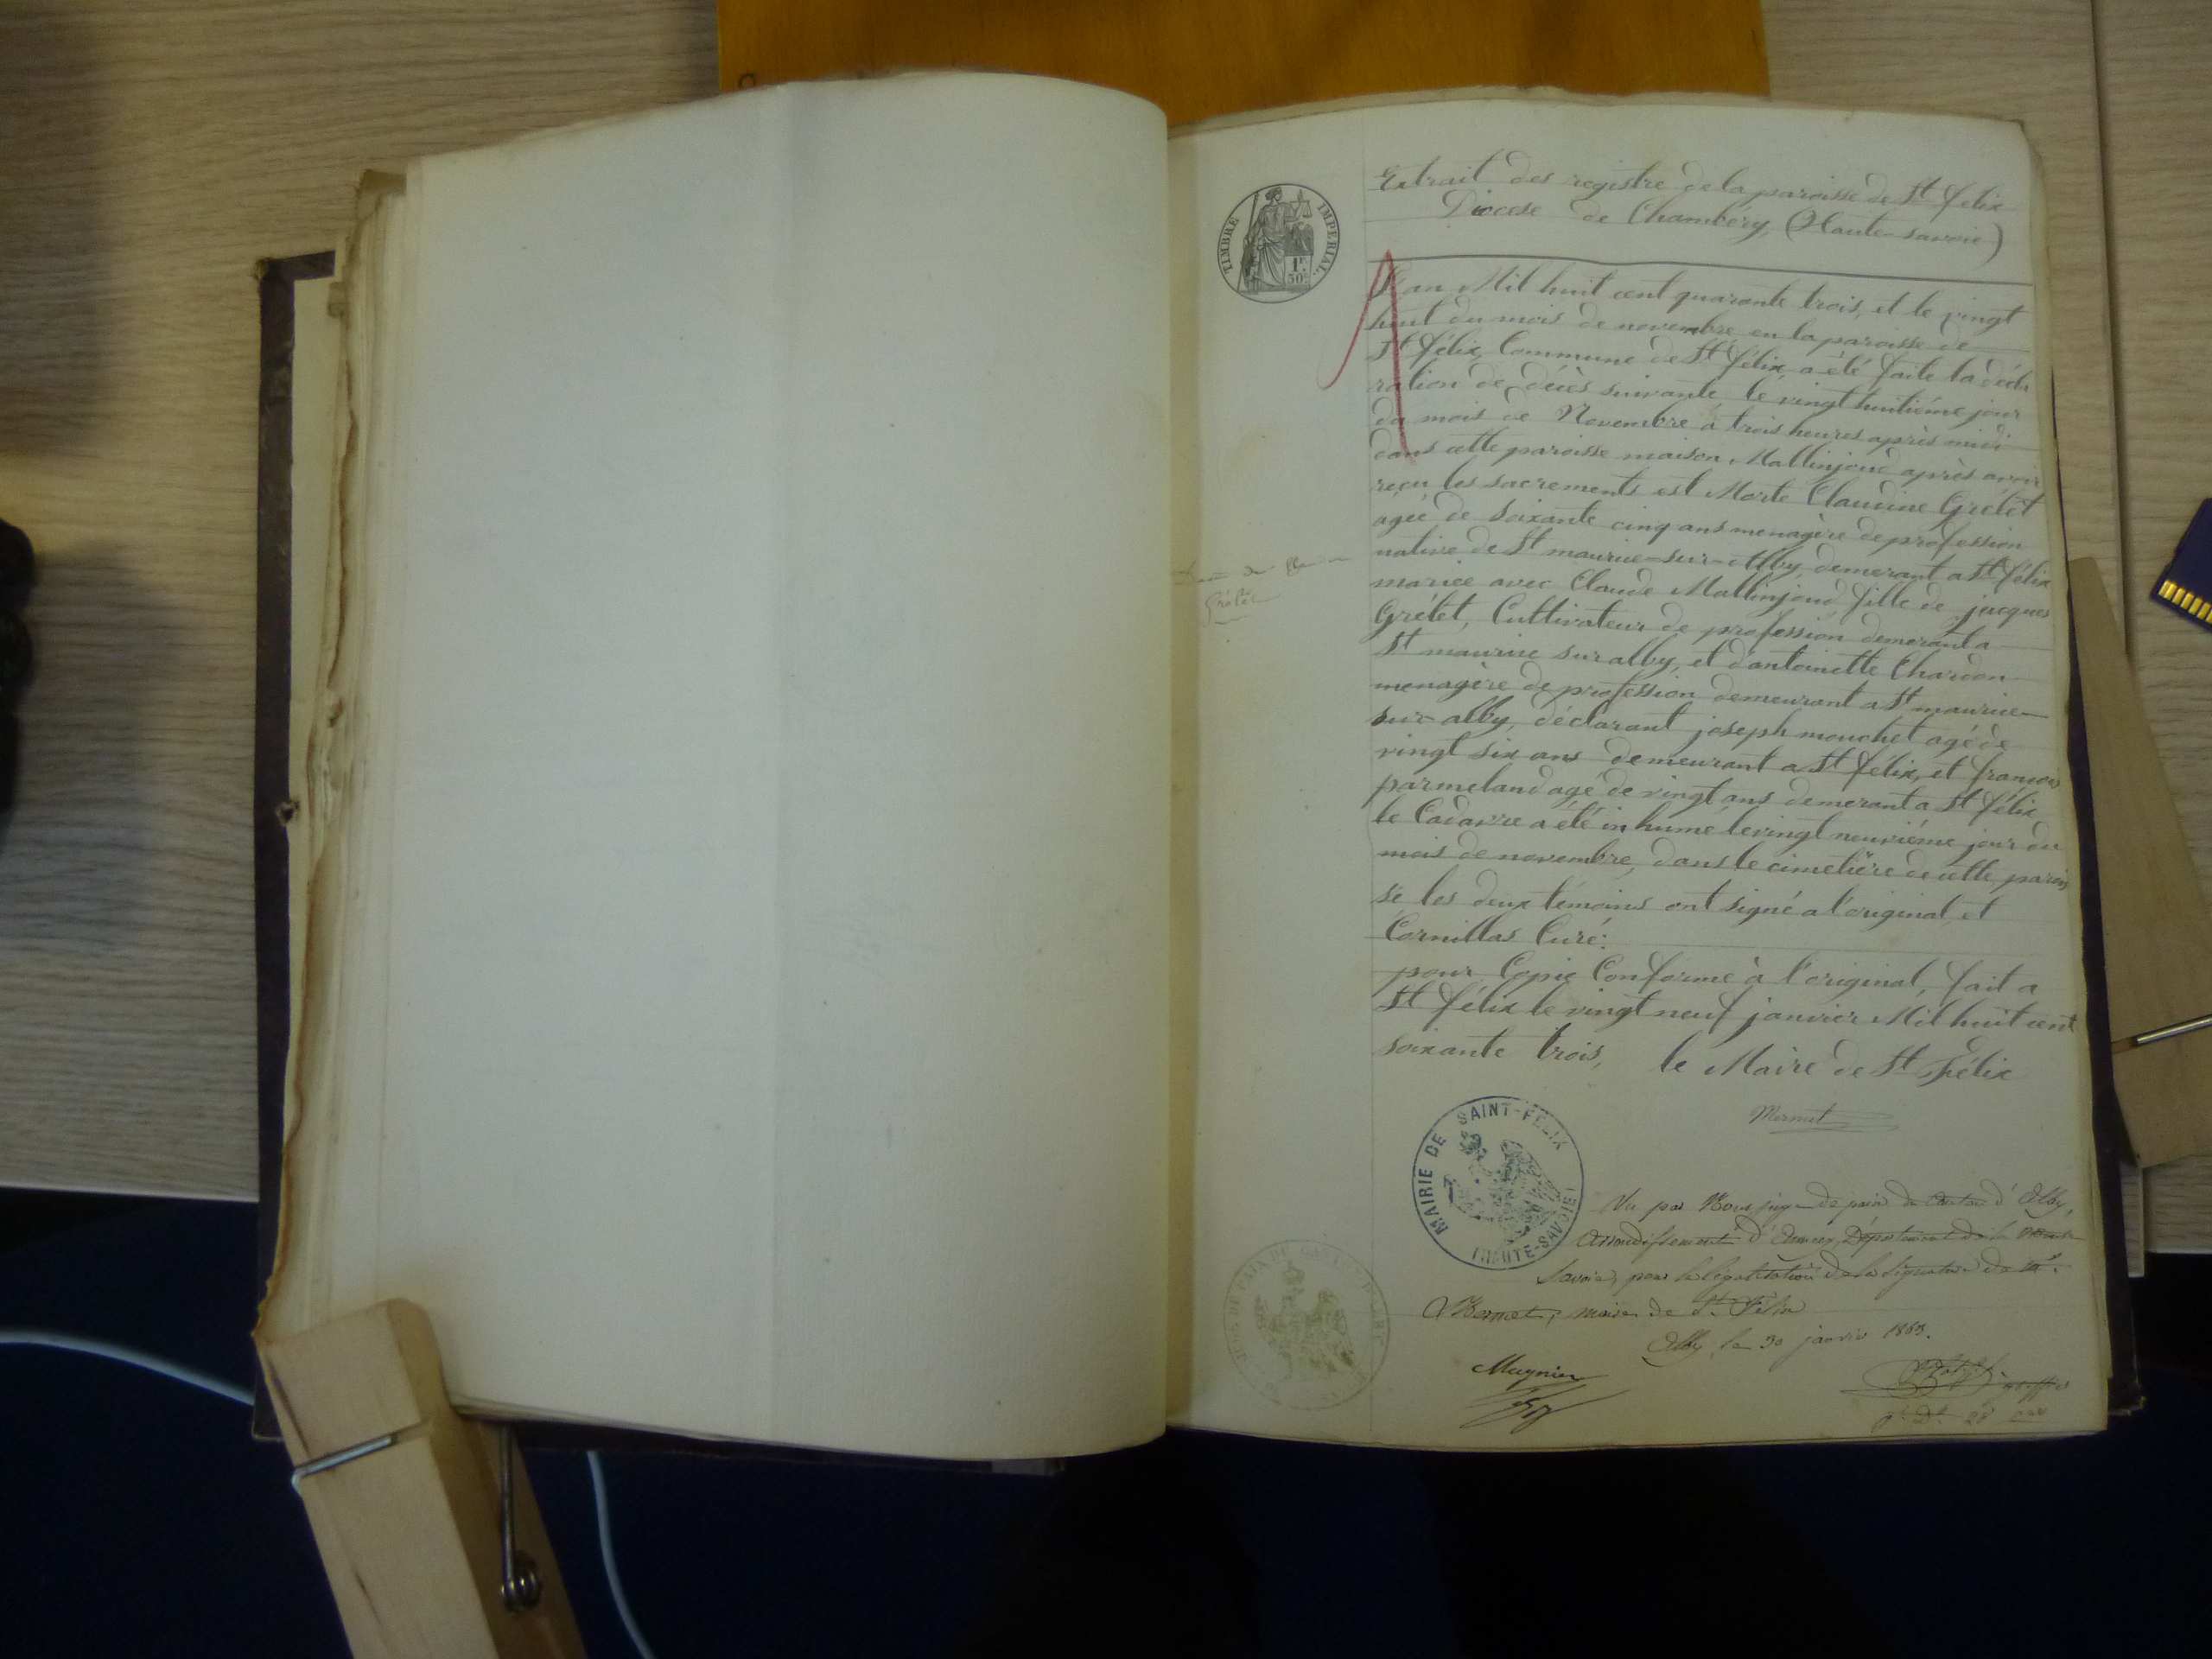 TIMBRE IMPERIAL
1F.
50C
Extrait des registre de la paroisse de St félix
Diocese de Chambéry, (Haute-Savoie)
L'an Mil huit cent quarante trois, et le vingt
huit du mois de novembre en la paroisse de
St félix, Commune de St félix, a été faite la décla
ration de décès suivante, le vingt huitiéme jour
du mois de Novembre a trois heures après midi
dans cette paroisse maison Mallinjoud après avoir
reçu les sacrements est Morte Claudine Grétet
agée de soixante cinq ans menagère de profession
native de St maurice-sur-Alby demerant a St félix
mariée avec Claude Mallinjoud, fille de jacques
Grétet, Cultivateur de profession demerant a
St maurice sur alby, et d'antoinette Chardon
menagère de profession demeurant a St maurice
sur alby, déclarant joseph mouchet agé de
vingt six ans demeurant a St félix, et françois
parmeland agé de vingt ans demerant a St félix
le Cadavre a été inhumé le vingt neuviéme jour du
mois de novembre, dans le cimetière de cette parois
se les deux témoins ont signé a l'original et
Cornillas Curé.
pour Copie Conforme à l'original, fait a
St félix le vingt neuf janvier Mil huit cent
soixante trois, le Maire de St Félix
Mermet
MAIRIE DE SAINT-FELIX
(HAUTE-SAVOIE)
Vu par Nous juge de paix du Canton d'Alby,
arrondissement d'Annecy, Département de la Haute
Savoie, pour la légalisation de la signature de Mr.
Mermet, maire de St Félix
Alby, le 30 janvier 1863.
Magnier